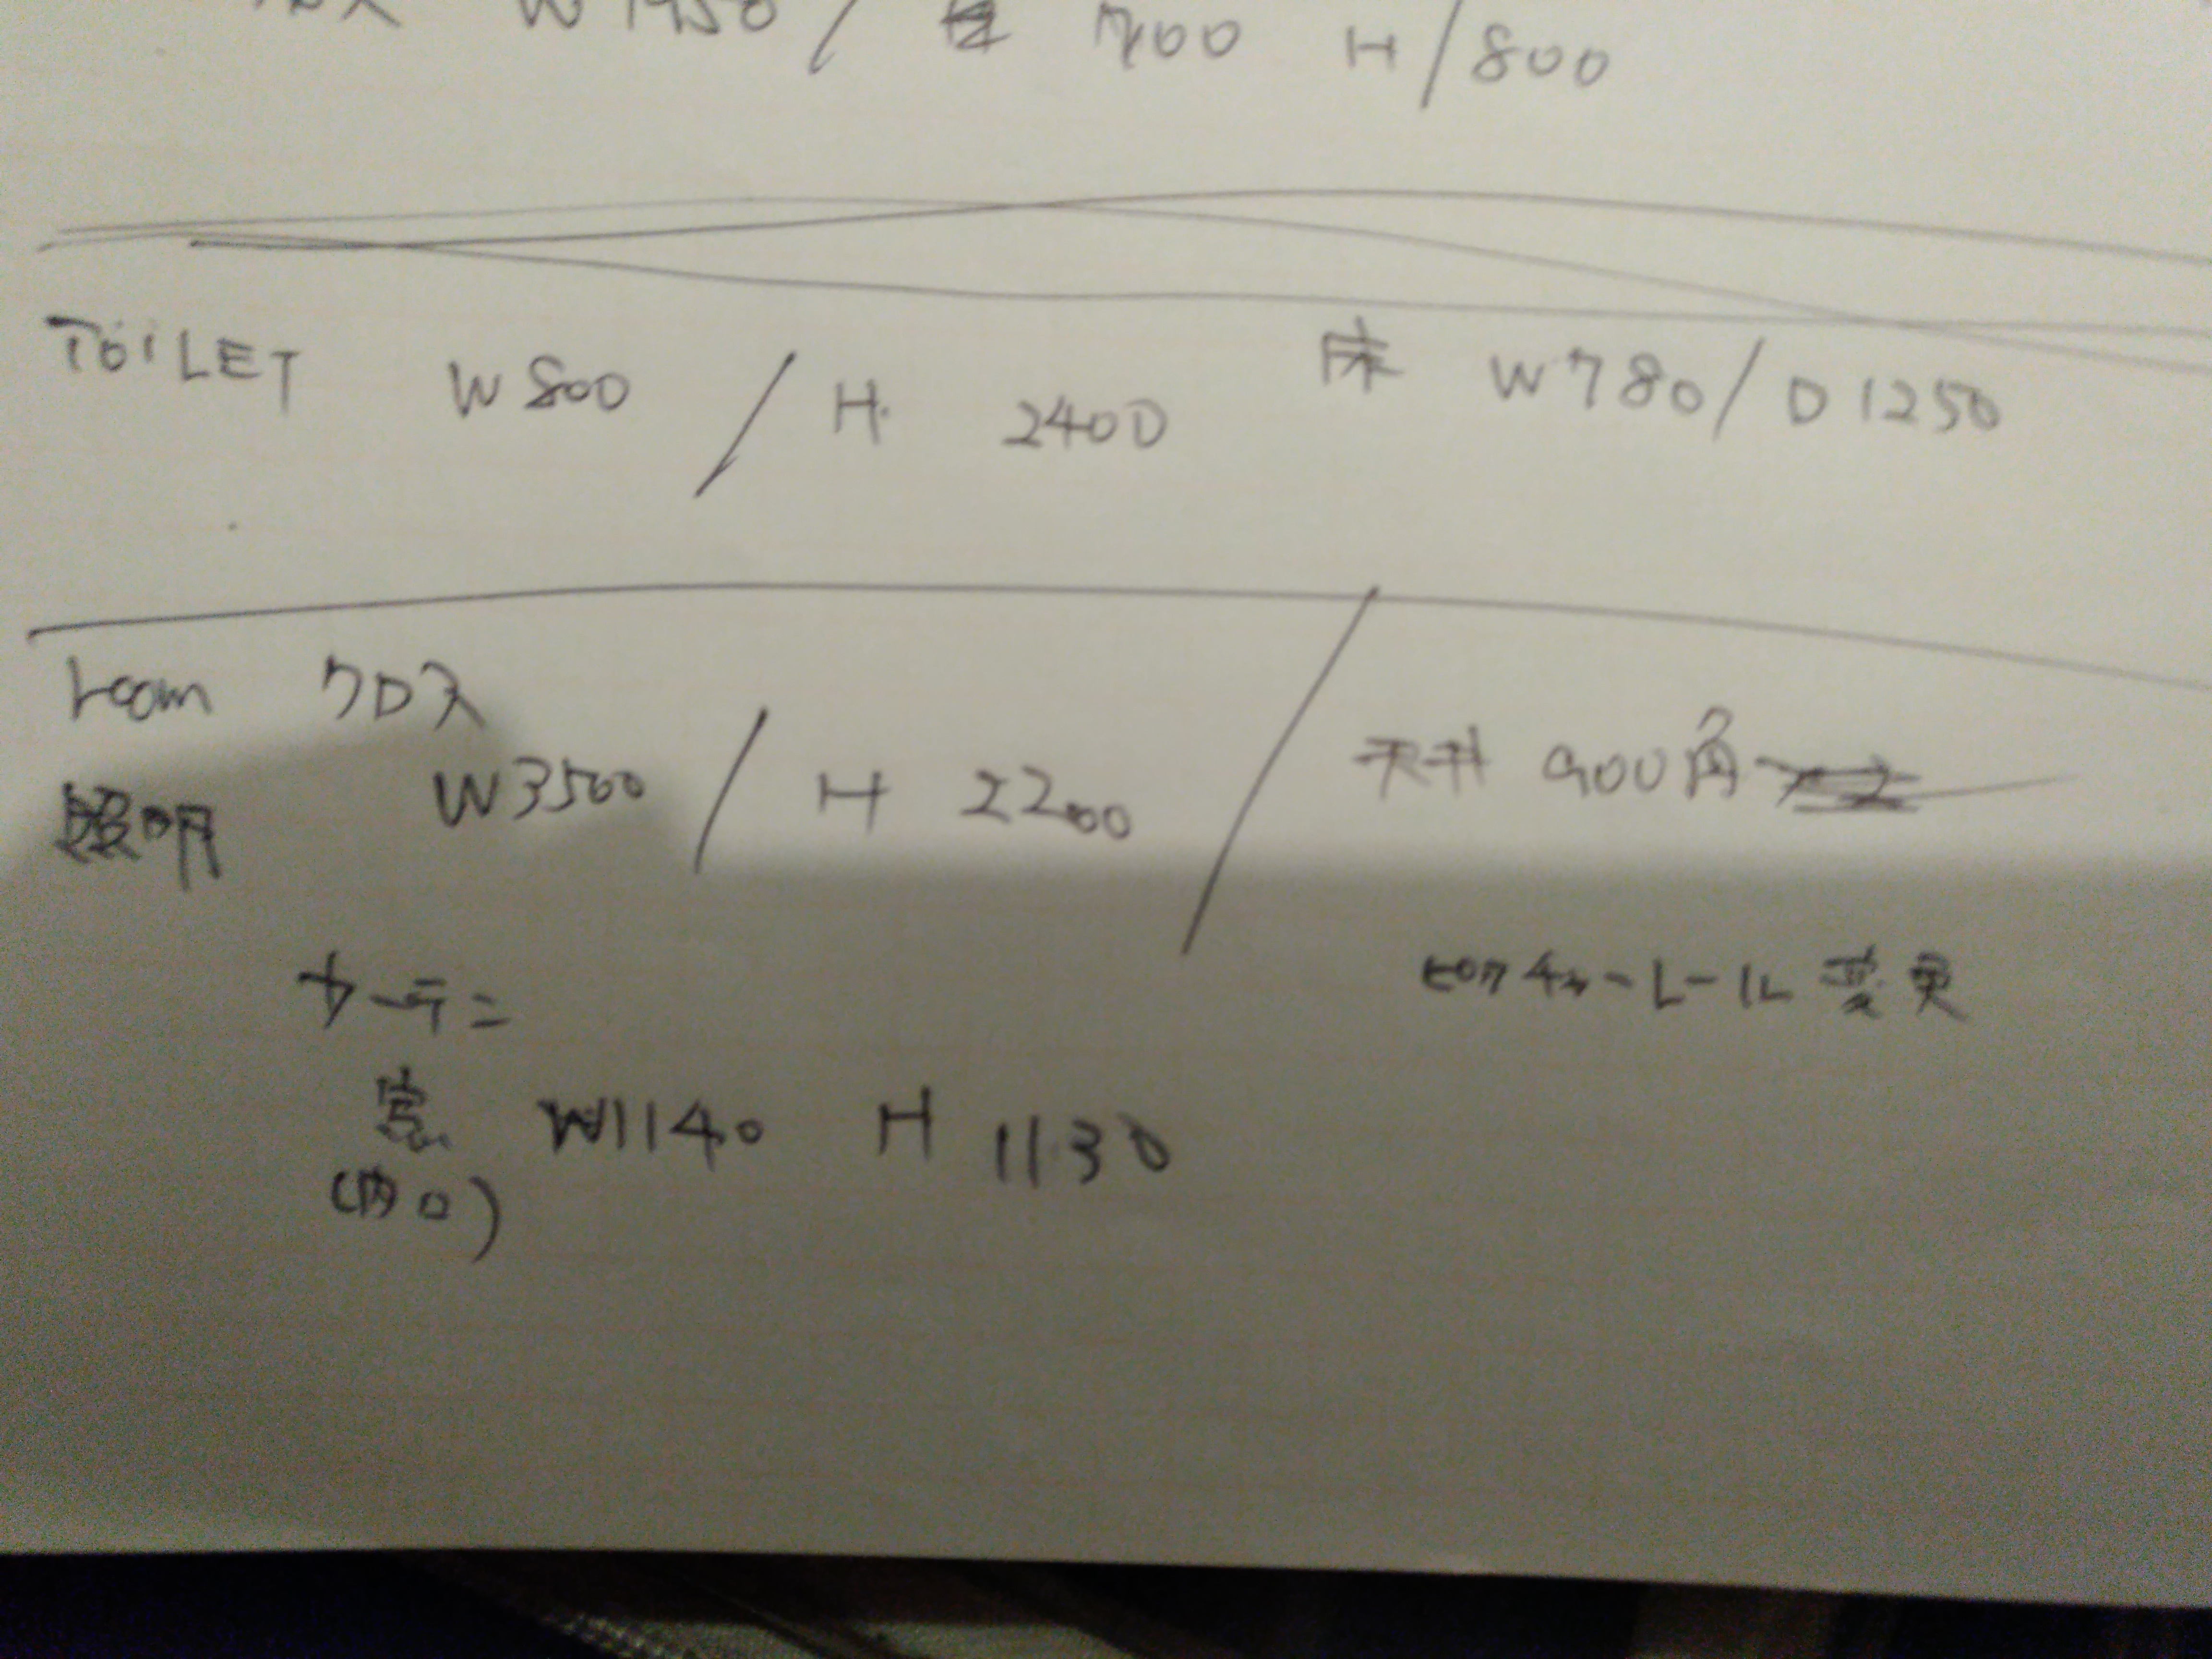 700 H/800
TOILET W800 / H 2400 床 W780/D1250
room クロス
W3500 / H 2200 / 天井 900角
照明
ピクチャーレール変更
カーテン
窓 W1140 H 1130
(内口)